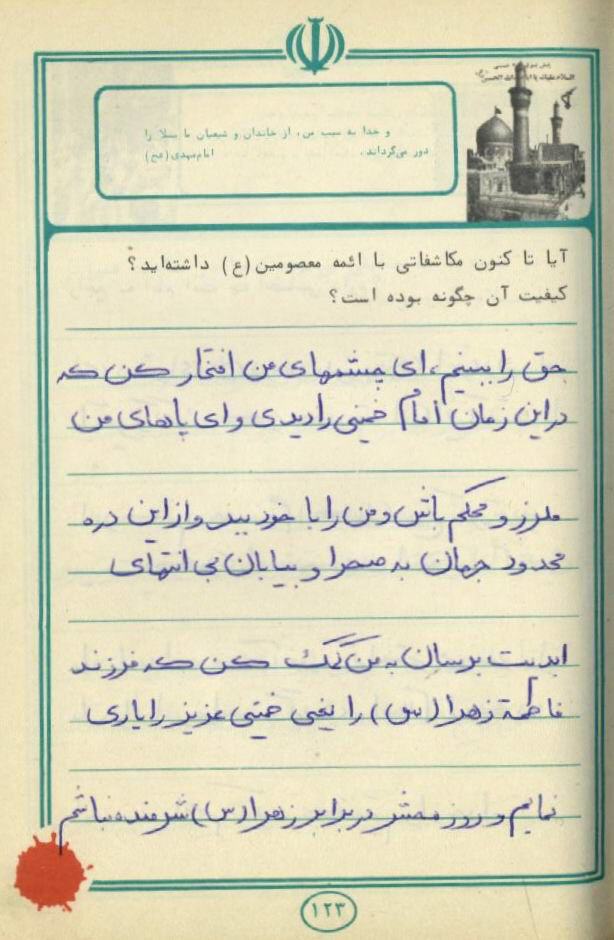 السلام علیک یا اباعبدالله الحسین
و خدا به سبب من، از خاندان و شیعیان ما بلا را
دور می‌گرداند. امام‌مهدی(عج)
آیا تا کنون مکاشفاتی با ائمه معصومین(ع) داشته‌اید؟
کیفیت آن چگونه بوده است؟
حق را ببینم، ای چشمهای من افتخار کن که
در این زمان امام خمینی را دیدی و ای پاهای من
ملرز و محکم باش و من را با خود ببر و از این دره
محدود جهان به صحرا و بیابان بی انتهای
ابدیت برسان به من کمک کن که فرزند
فاطمة زهرا(س) را یعنی خمینی عزیز را یاری
نمایم و روز محشر در برابر زهرا(س) شرمنده نباشم
۱۲۳